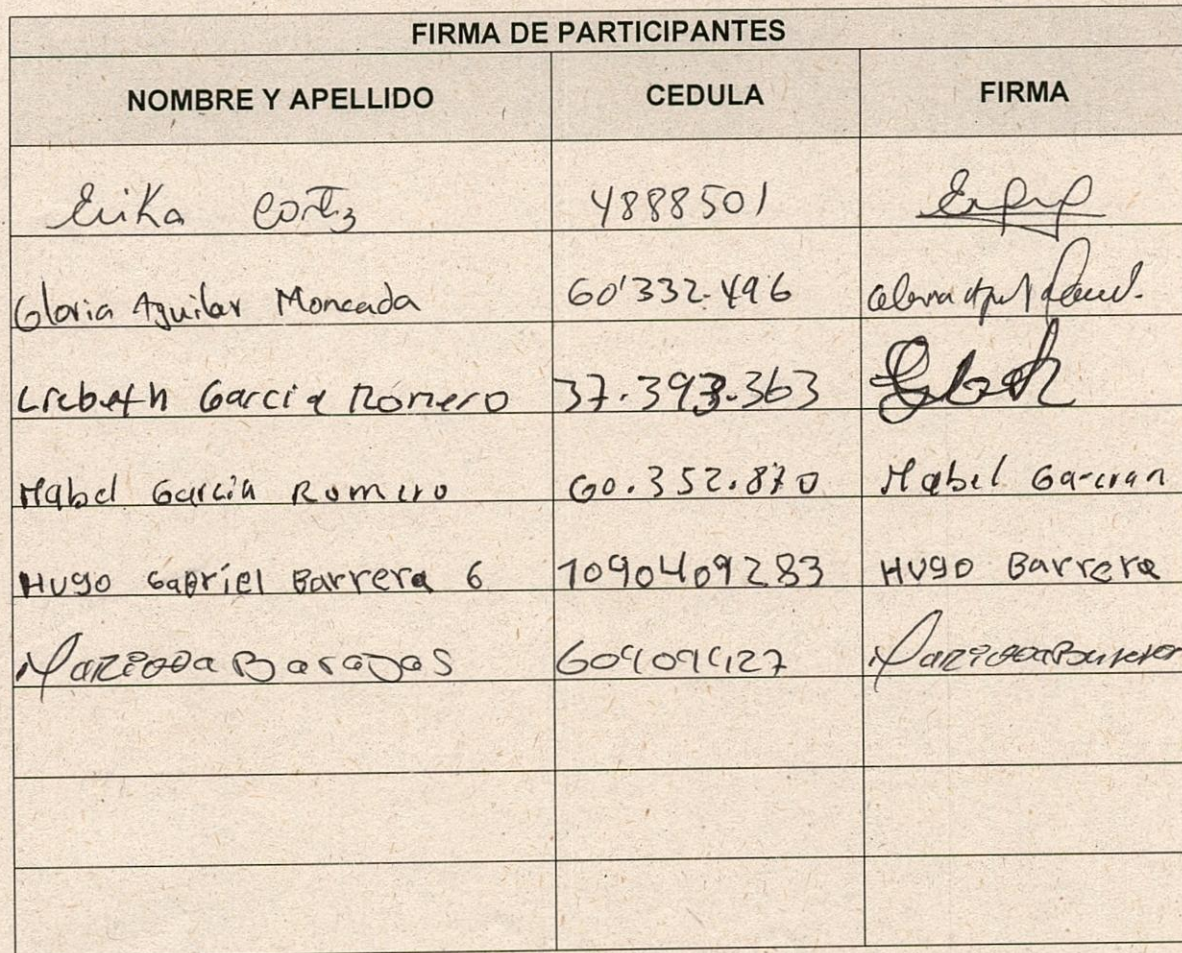 FIRMA DE PARTICIPANTES
NOMBRE Y APELLIDO CEDULA FIRMA
Erika Cortz 4888501
Gloria Aguilar Moncada 60'332.496
Garcia Romero 37.393.363
Mabel Garcia Romero 60.352.870 Mabel
HUgo Gabriel Barrera G 1090409283 HUgo Barrera
Barajas